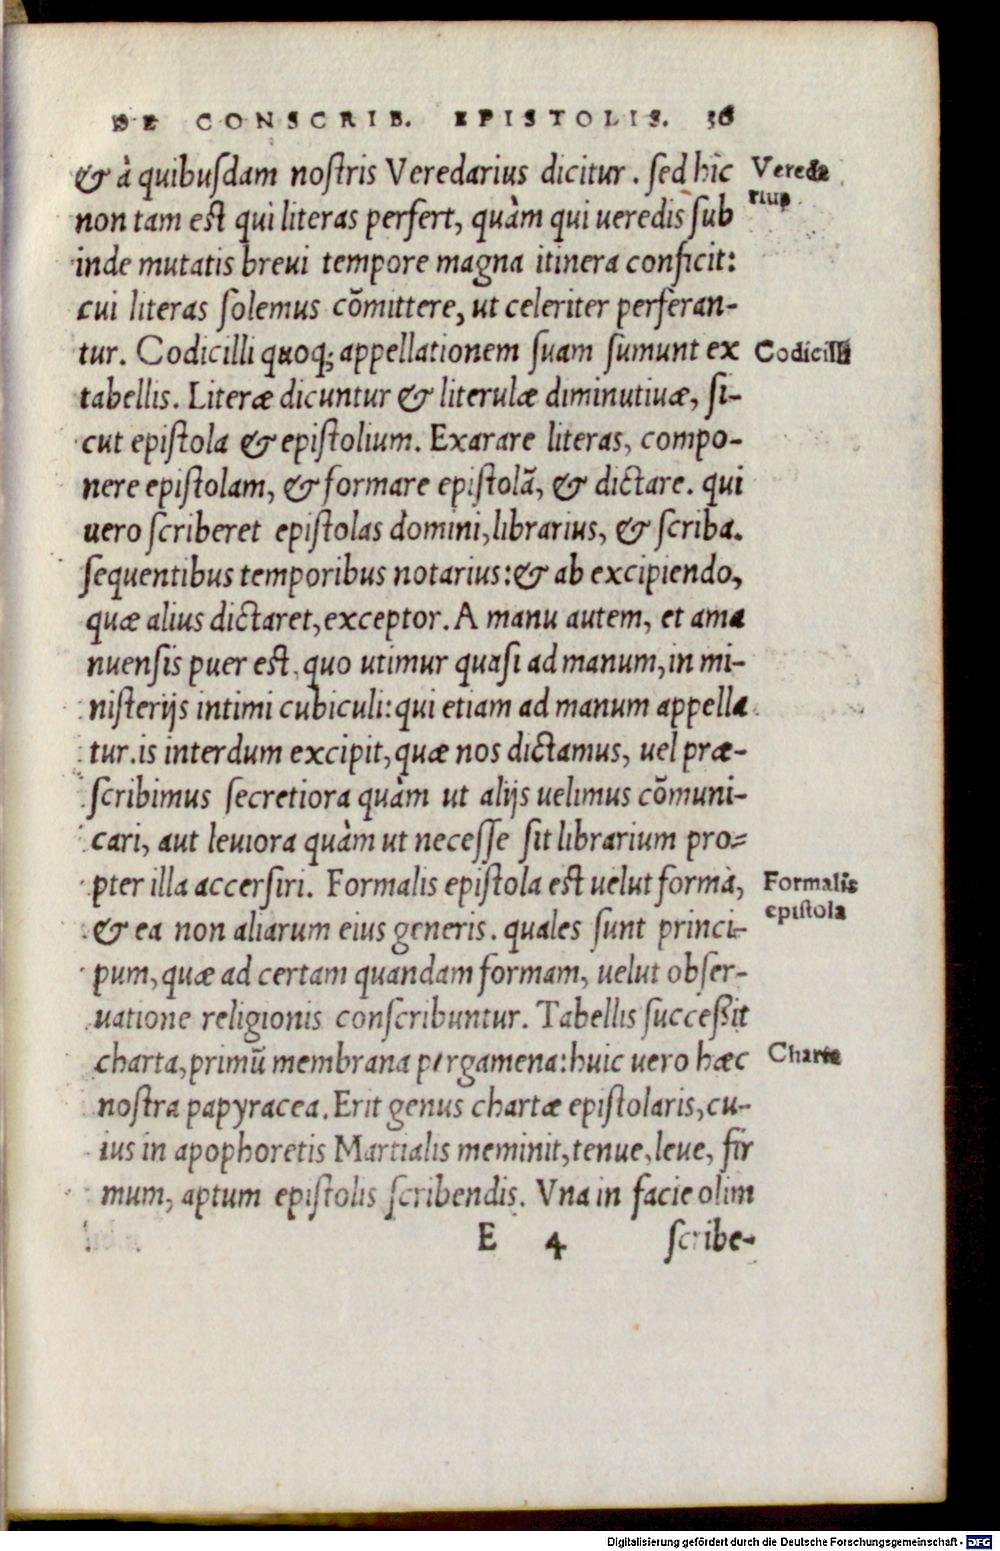 DE CONSCRIB. EPISTOLIS. 36
& à quibusdam nostris Veredarius dicitur. sed hic
Vereda
rius
non tam est qui literas perfert, quàm qui ueredis sub
inde mutatis breui tempore magna itinera conficit:
cui literas solemus cõmittere, ut celeriter perferan-
tur. Codicilli quoq; appellationem suam sumunt ex
Codicilli
tabellis. Literæ dicuntur & literulæ diminutiuæ, si-
cut epistola & epistolium. Exarare literas, compo-
nere epistolam, & formare epistolã, & dictare. qui
uero scriberet epistolas domini, librarius, & scriba.
sequentibus temporibus notarius: & ab excipiendo,
quæ alius dictaret, exceptor. A manu autem, et ama
nuensis puer est, quo utimur quasi ad manum, in mi-
nisterijs intimi cubiculi: qui etiam ad manum appella
tur. is interdum excipit, quæ nos dictamus, uel præ-
scribimus secretiora quàm ut alijs uelimus cõmuni-
cari, aut leuiora quàm ut necesse sit librarium pro=
pter illa accersiri. Formalis epistola est uelut forma,
Formalis
epistola
& ea non aliarum eius generis. quales sunt princi-
pum, quæ ad certam quandam formam, uelut obser-
uatione religionis conscribuntur. Tabellis succeßit
charta, primũ membrana pergamena: huic uero hæc
Charta
nostra papyracea. Erit genus chartæ epistolaris, cu-
ius in apophoretis Martialis meminit, tenue, leue, fir
mum, aptum epistolis scribendis. Vna in facie olim
E 4 scribe-
Digitalisierung gefördert durch die Deutsche Forschungsgemeinschaft - DFG